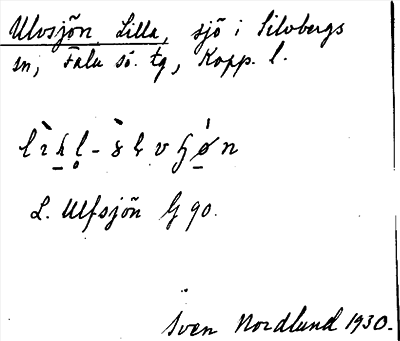 Ulvsjön, Lilla, sjö i Silvbergs
sn, Falu sö. tg, Kopp. l.
L. Ulfsjön G 90.
Sven Nordlund 1930.